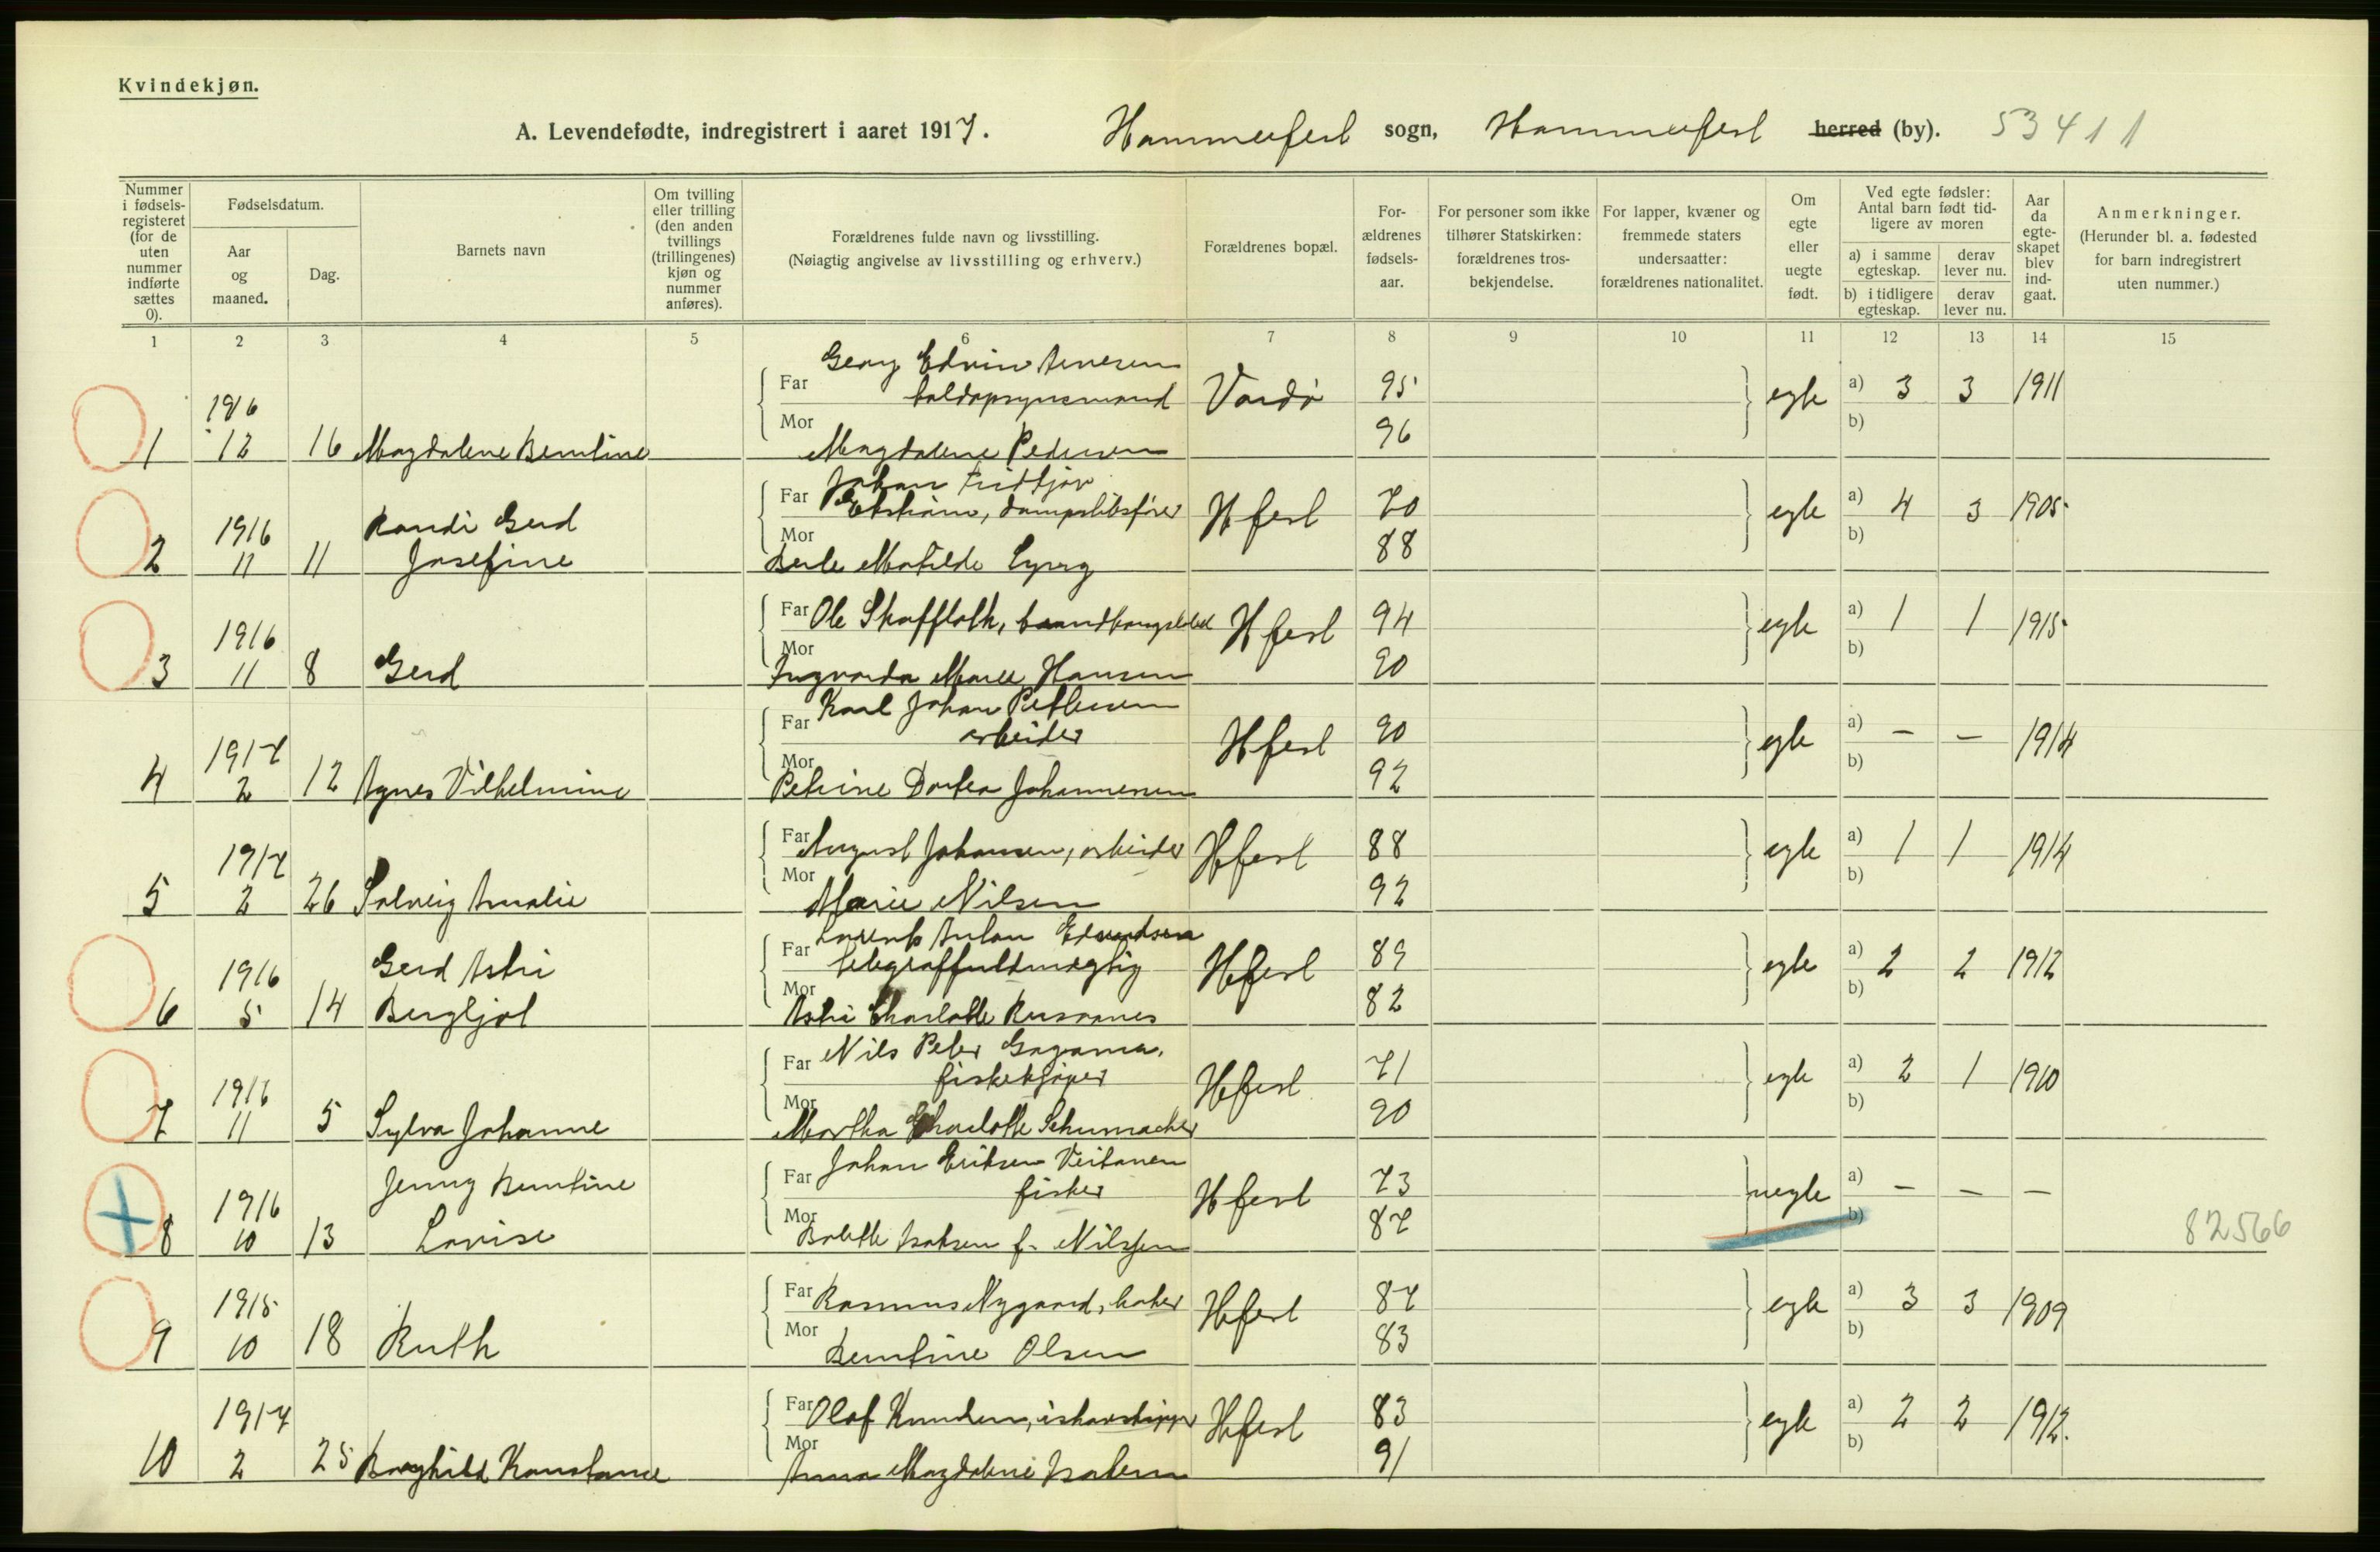 Kvindekjøn.
A. Levendefødte, indregistrert i aaret 1917. Hammerfest sogn, Hammerfest herred (by). 53411
Nummer i fødselsregisteret (for de uten nummer indførte sættes 0).
Fødselsdatum.
Aar og maaned.
Dag.
Barnets navn
Om tvilling eller trilling (den anden tvillings (trillingenes) kjøn og nummer anføres).
Forældrenes fulde navn og livsstilling.
(Nøiagtig angivelse av livsstilling og erhverv.)
Forældrenes bopæl.
Forældrenes fødselsaar.
For personer som ikke tilhører Statskirken: forældrenes trosbekjendelse.
For lapper, kvæner og fremmede staters undersaatter: forældrenes nationalitet.
Om egte eller uegte født.
Ved egte fødsler: Antal barn født tidligere av moren
a) i samme egteskap.
derav lever nu.
b) i tidligere egteskap.
derav lever nu.
Aar da egteskapet blev indgaat.
Anmerkninger.
(Herunder bl. a. fødested for barn indregistrert uten nummer.)
1 2 3 4 5 6 7 8 9 10 11 12 13 14 15
Georg Edvin Arnesen
Far toldopsynsmand Vardø 95 egte a) 3 3 1911
1916
Mor 96 b)
1 12 16 Magdalene Berntine Magdalene Pedersen
Johan Fridtjov
Far Ekstrøm, dampskibsfører Hfest 70 egte a) 4 3 1905
1916 Randi Gerd
Mor 88 b)
2 11 11 Josefine Matilde
Far Ole Skaffloth, Hfest 94 egte a) 1 1 1915
1916
Mor 90 b)
3 11 8 Gerd Ingvarda Marie Hansen
Karl Johan Pettersen
Far arbeider Hfest 90 egte a) — — 1914
1917
Mor 92 b)
4 2 12 Agnes Vilhelmine Petrine Dortea Johannesen
Far August Johansen, arbeider Hfest 88 egte a) 1 1 1914
1917
Mor 92 b)
5 2 26 Solveig Amalie Marie Nilsen
Lorents Anton Edvardsen
Far telegraffuldmægtig Hfest 89 egte a) 2 2 1912
1916 Gerd Astri
Mor 82 b)
6 5 14 Bergljot Astri Charlotte
Nils Peter
Far fiskekjøper Hfest 71 egte a) 2 1 1910
1916
Mor 90 b)
7 11 5 Sylva Johanne Martha Charlotte Schumacher
Johan Eriksen
Far fisker Hfest 73 uegte a) — — —
Jenny Berntine
1916
Mor 87 b) 82566
8 10 13 Lovise Bolette Isaksen f. Nilssen
Far Rasmus Nygaard, baker Hfest 87 egte a) 3 3 1909
1915
Mor 83 b)
9 10 18 Ruth Berntine Olsen
Far Olaf Knudsen, ishavsskipper Hfest 83 egte a) 2 2 1912.
1917
Mor 91 b)
10 2 25 Borghild Konstance Anna Magdalene Isaksen